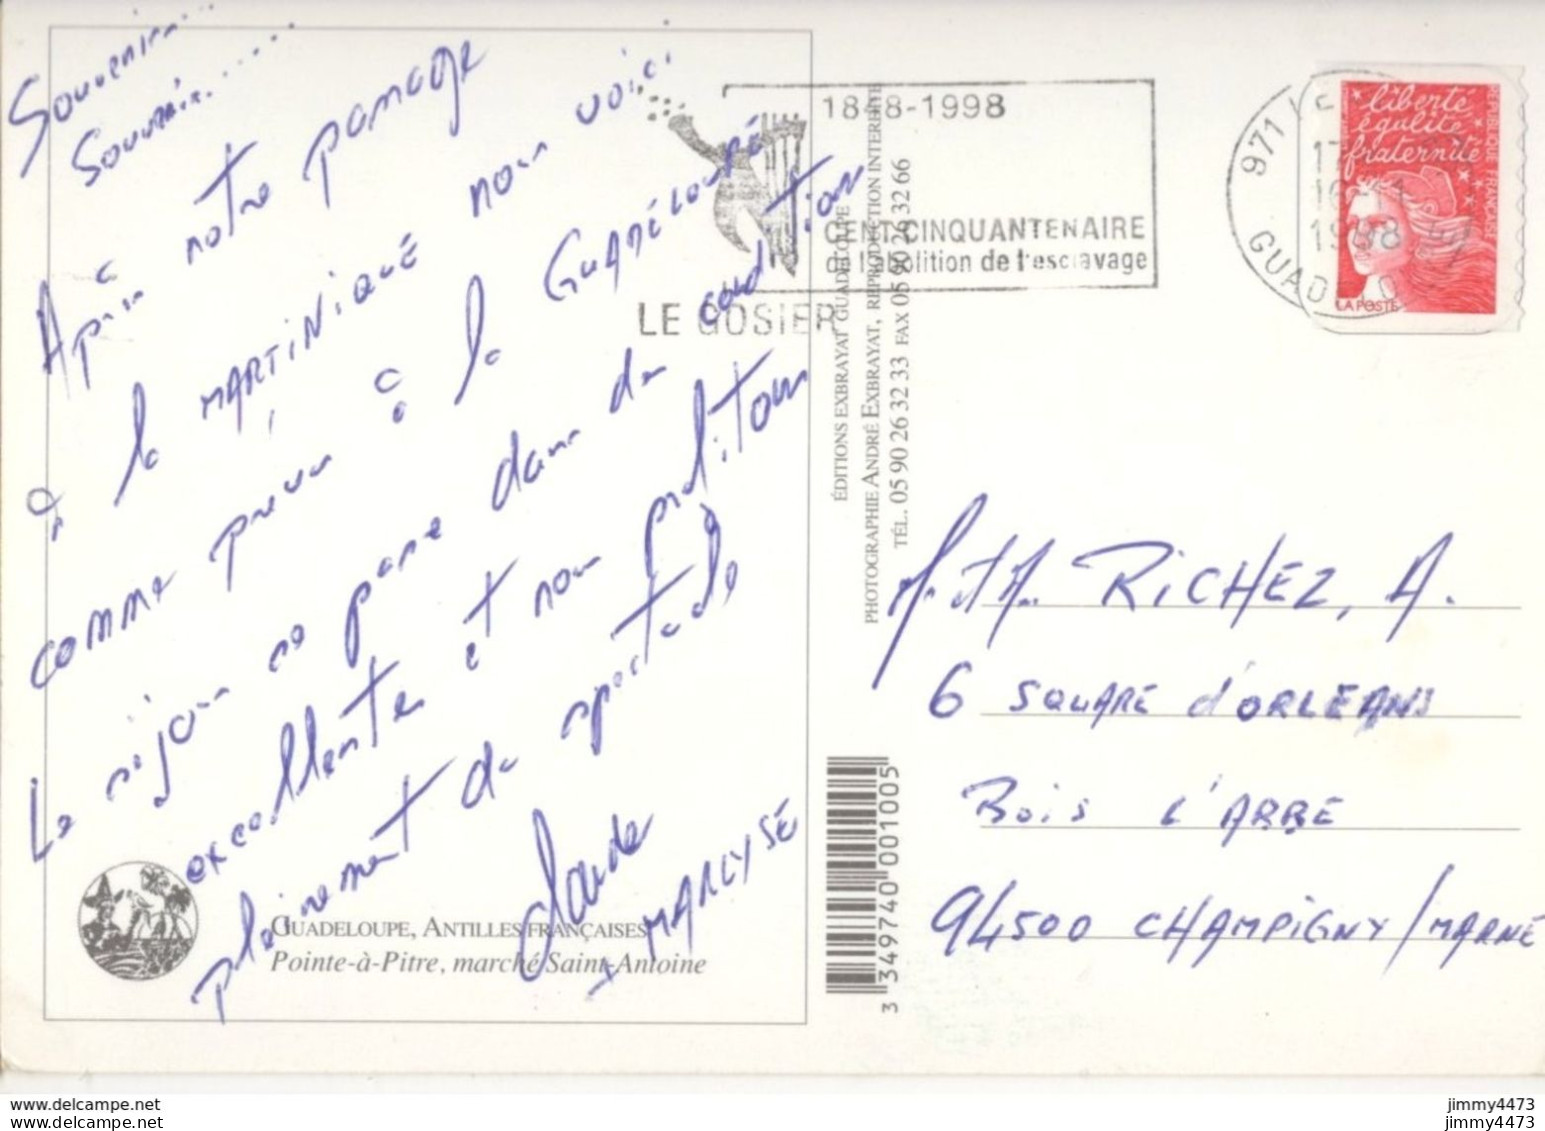 Souvenir...
Souvenir.....
Après notre passage
à la MARTINIQUE nous voici
comme prévu à la GUADELOUPE
Le séjour se passe dans des conditions
excellentes et nous profitons
pleinement du spectacle
Claude
+ MARLYSE
GUADELOUPE, ANTILLES FRANÇAISES
Pointe-à-Pitre, marché Saint-Antoine
ÉDITIONS EXBRAYAT GUADELOUPE
PHOTOGRAPHIE ANDRÉ EXBRAYAT, REPRODUCTION INTERDITE
TÉL. 05 90 26 32 33 FAX 05 90 26 32 66
3 349740 001005
1848-1998
CENT CINQUANTENAIRE
de l'abolition de l'esclavage
LE GOSIER
971 LE
17
1998
GUAD
liberté
égalité
fraternité
RÉPUBLIQUE FRANÇAISE
LA POSTE
M. et M. RICHEZ, A.
6 SQUARE d'ORLEANS
BOIS L'ABBE
94500 CHAMPIGNY/MARNE
delcampe.net
delcampe.net
jimmy4473
jimmy4473